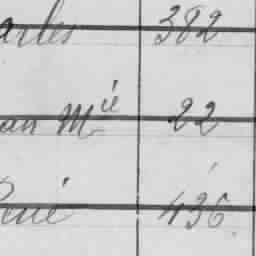 arles 382
an Mie 22
René 436